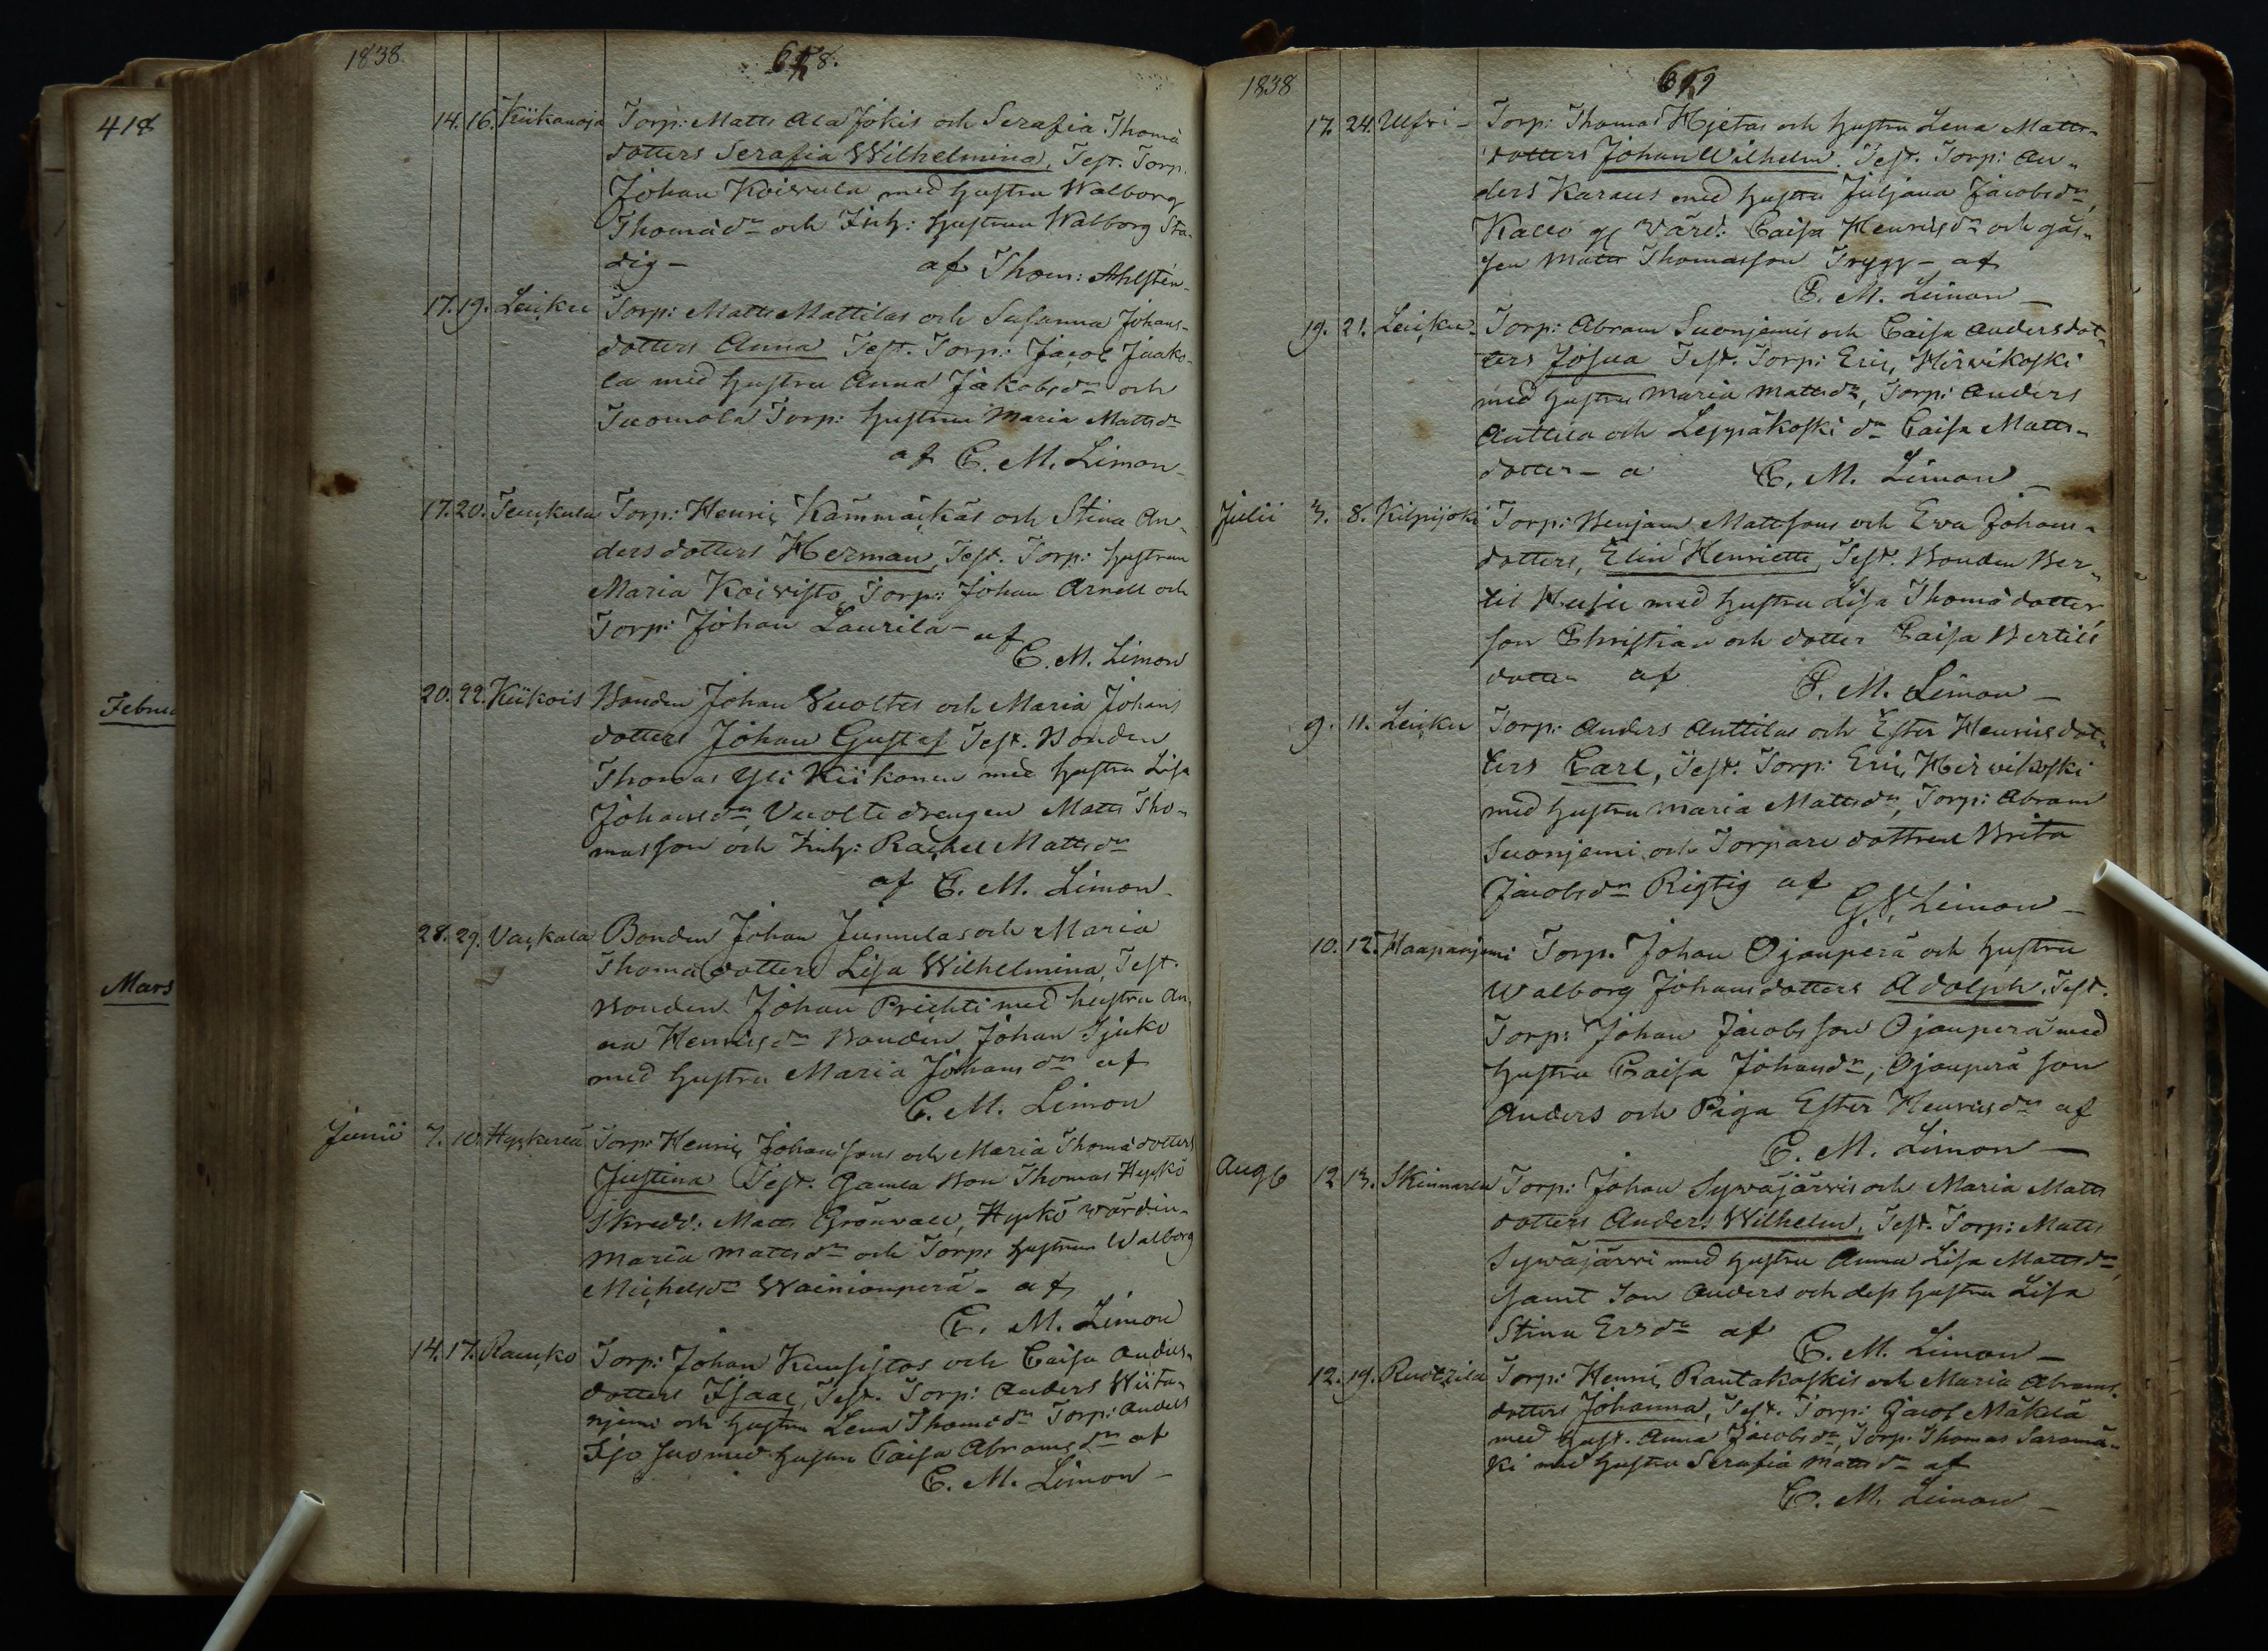 418
Februa
Mars
1838.
658.
14. 16. Kiikanoja Torp: Matts Ala Jokis och Serafia Thomä
dotters Serafia Wilhelmina, Test. Torp.
Johan Koivula med hustru Walborg
Thomäd:r och Inh: hustrun Walborg Sta-
dig - af Thom: Ahlstén -
17. 19. Lauku Torp: Matts Mattilas och Susanna Johans-
dotters Anna Test. Torp: Jacob Jaako-
la med hustru Anna Jakobsd:r och
Tuomola Torp: hustrun Maria Mattsd:r
af C. M. Limon -
17. 20. Torp: Henric Kämmäkäs och Stina An-
dersdotters Herman, Test. Torp: hustrun
Maria Koivisto, Torp: Johan Arnell och
Torp: Johan Laurila - af
C. M. Limon
20. 22. Kiikois Bonden Johan Vuoltes och Maria Johans
dotters Johan Gustaf Test. Bonden
Thomas Yli Kiikonen med hustru Lisa
Johansd:r, Vuolte drengen Matts Tho-
masson och Inh: Rachel Mattsd:r
af C. M. Limon -
28. 29. Vackala Bonden Johan Junnulas och Maria
Thomädotters Lisa Wilhelmina, Test.
Bonden Johan Prichti med hustru An-
na Henricsd:r Bonden Johan Sjuko
med hustru Maria Johansd:r af
C. M. Limon
Junii 7. 10. Torp: Henric Johanssons och Maria Thomädotters
Justina Test. Gamla Bon Thomas Hypkö
Skredd: Matts Grönvall, Hypkö värdin-
Maria Mattsd:r och Torp: hustrun Walborg
Michelsd:r Wainionperä - af
C. M. Limon
14. 17. Rauko Torp: Johan Kuusistos och Caisa Anders-
dotters Isaac, Test. Torp: Anders Wiita-
njemi och hustru Lena Thomäd:r Torp: Anders
Iso suo med hustru Caisa Abramsd:r af
C. M. Limon -
1838
659
17. 24. Ulfvi - Torp: Thomas Hjetas och hustru Lena Matts-
dotters Johan Wilhelm. Test. Torp: An-
ders Karaus med hustru Juljana Jacobsd:r,
Kallo Värd: Caisa Henricsd:r och gås-
sen Matts Thomasson Trygg - af
C. M. Limon -
19. 21. Lauku. Torp: Abram Suonjemis och Caisa Andersdot-
ters Josua Test. Torp: Eric Hirvikoski
med hustru Maria Mattsd:r, Torp: Anders
Anttila och Leppäkoski d:r Caisa Matts-
dotter - a C. M. Limon -
Julii 3. 8. Kilpijoki Torp: Benjam Mattssons och Eva Johans-
dotters, Elin Henriette, Test. Bonden Ber-
til Husu med hustru Lisa Thomädotter,
son Christian och dotter Caisa Bertils
dotter af C. M. Limon -
9. 11. Lauku Torp: Anders Anttilas och Ester Henricsdot-
ters Carl, Test. Torp: Eric Hirvikoski
med hustru Maria Mattsd:r, Torp: Abram
Suonjemi och Torpare dottren Brita
Jacobsd:r Rigtig af
G. Limon -
10. 12. Haapanjemi Torp. Johan Ojanperä och hustru
Walborg Johansdotters Adolph. Test.
Torp: Johan Jacobsson Ojanperä med
hustru Caisa Johansd:r, Ojanperä son
Anders och Piga Ester Henricsd:r af
C. M. Limon -
Aug 12 13. Skinnarla Torp: Johan Sywäjärvis och Maria Matts
dotters Anders Wilhelm, Test. Torp: Matts
Sywäjärvi med hustru Anna Lisa Mattsd:r,
samt Son Anders och dess hustru Lisa
Stina Ersd:r af
C. M. Limon -
12. 19. Ruotzila Torp: Henric Rautakoskis och Maria Abrams-
dotters Johanna, Test. Torp: Jacob Mäkelä
med hust. Anna Jacobsd:r, Torp. Thomas Saramä-
ki med hustru Serafia Mattsd:r af
C. M. Limon -